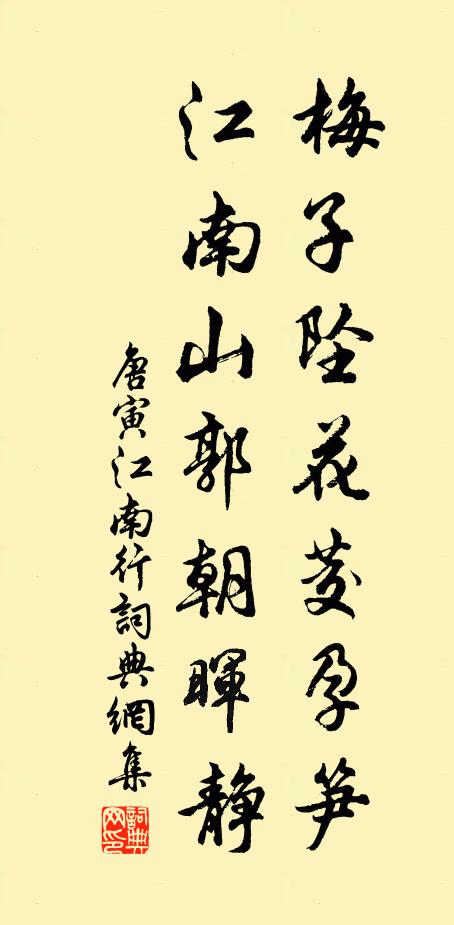 梅子坠花茭孕笋
江南山郭朝暉静
唐寅江南行詞典網集
詞典網印